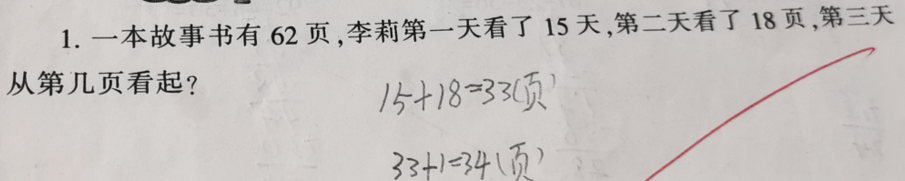 1. 一本故事书有 62 页,李莉第一天看了 15 天,第二天看了 18 页,第三天
从第几页看起?
15+18=33(页)
33+1=34(页)